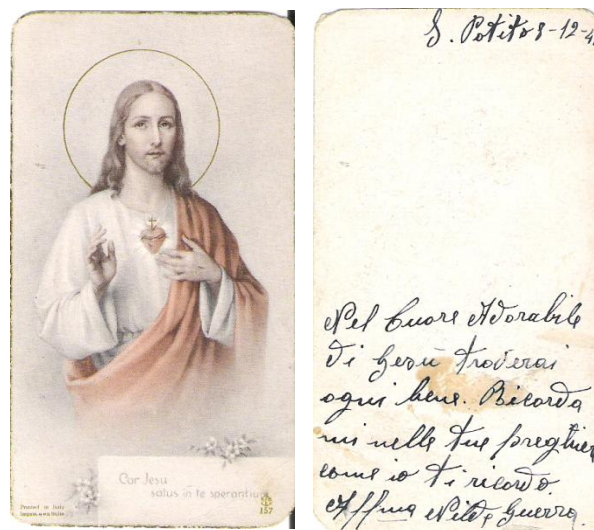 Cor Jesu
salus in te sperantium
Printed in Italy
157
S. Potito 8-12-4
Nel Cuore Adorabile
di Gesù troverai
ogni bene. Ricorda
mi nelle tue preghier
come io ti ricordo
Affma Nilde Guerra